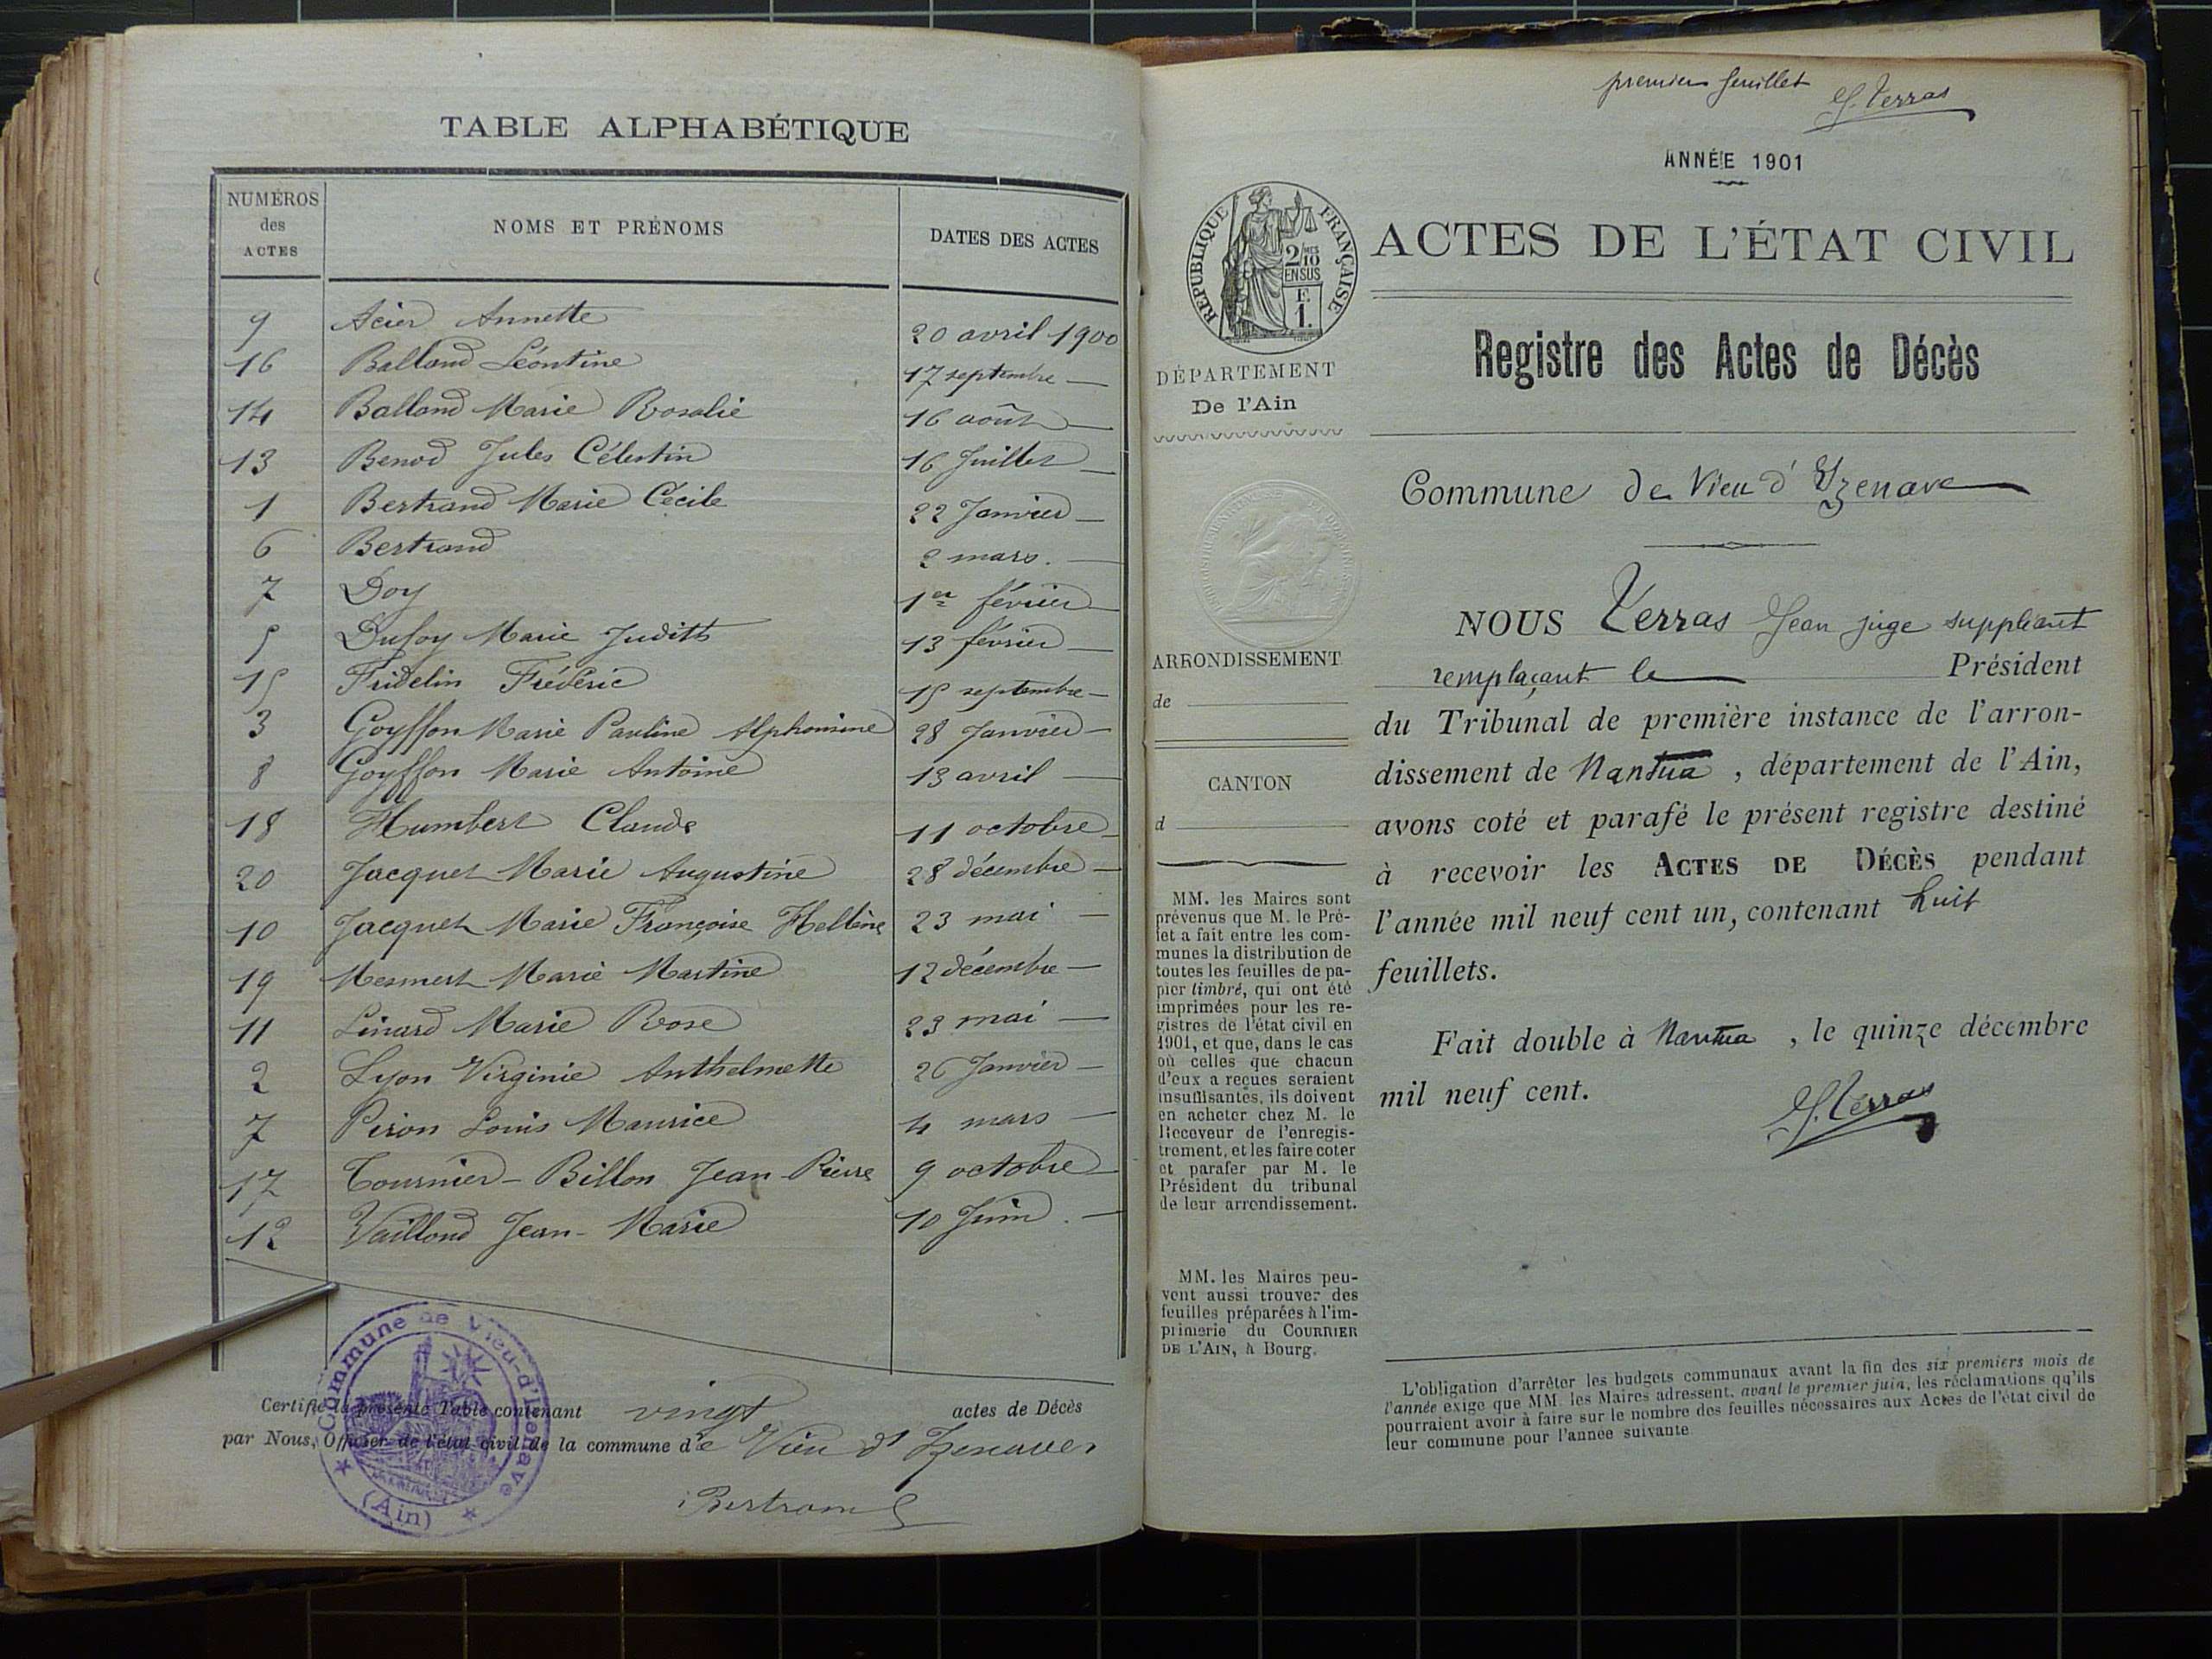 TABLE ALPHABÉTIQUE
NUMÉROS des ACTES NOMS ET PRÉNOMS DATES DES ACTES
9 Acier Annette 20 avril 1900
16 Balland Léontine 17 septembre —
14 Balland Marie Rosalie 16 août —
13 Benod Jules Célestin 16 Juillet —
1 Bertrand Marie Cécile 22 Janvier —
6 Bertrand 2 mars. —
7 Doy 1er février —
5 Dufoy Marie Judith 13 février —
15 Fridelin Frédéric 15 septembre —
3 Goyffon Marie Pauline Alphonsine 28 Janvier —
8 Goyffon Marie Antoine 13 avril —
18 Humbert Claude 11 octobre —
20 Jacquet Marie Augustine 28 décembre —
10 Jacquet Marie Françoise Hellène 23 mai —
19 Mesmert Marie Martine 12 décembre —
11 Linard Marie Rose 23 mai —
2 Lyon Virginie Anthelmette 26 Janvier —
7 Piron Louis Maurice 4 mars —
17 Tournier-Billon Jean-Pierre 9 octobre —
12 Vailloud Jean-Marie 10 Juin. —
Certifié la présente Table contenant vingt actes de Décès
par Nous, Officier de l'état civil de la commune de Vieu d'Izenave
Bertrand
Commune de Vieu-d'Izenave
(Ain)
premier feuillet J. Terras
ANNÉE 1901
RÉPUBLIQUE FRANÇAISE
2/10 MES
EN SUS
F.
1.
ACTES DE L'ÉTAT CIVIL
Registre des Actes de Décès
DÉPARTEMENT
De l'Ain
Commune de Vieu d'Yzenave
ARRONDISSEMENT
de
CANTON
d
MM. les Maires sont
prévenus que M. le Pré-
fet a fait entre les com-
munes la distribution de
toutes les feuilles de pa-
pier timbré, qui ont été
imprimées pour les re-
gistres de l'état civil en
1901, et que, dans le cas
où celles que chacun
d'eux a reçues seraient
insuffisantes, ils doivent
en acheter chez M. le
Receveur de l'enregis-
trement, et les faire coter
et parafer par M. le
Président du tribunal
de leur arrondissement.
MM. les Maires peu-
vent aussi trouver des
feuilles préparées à l'im-
primerie du COURRIER
DE L'AIN, à Bourg.
NOUS Terras Jean juge suppléant
remplaçant le Président
du Tribunal de première instance de l'arron-
dissement de Nantua, département de l'Ain,
avons coté et parafé le présent registre destiné
à recevoir les ACTES DE DÉCÈS pendant
l'année mil neuf cent un, contenant huit
feuillets.
Fait double à Nantua, le quinze décembre
mil neuf cent.
J. Terras
L'obligation d'arrêter les budgets communaux avant la fin des six premiers mois de
l'année exige que MM. les Maires adressent, avant le premier juin, les réclamations qu'ils
pourraient avoir à faire sur le nombre des feuilles nécessaires aux Actes de l'état civil de
leur commune pour l'année suivante